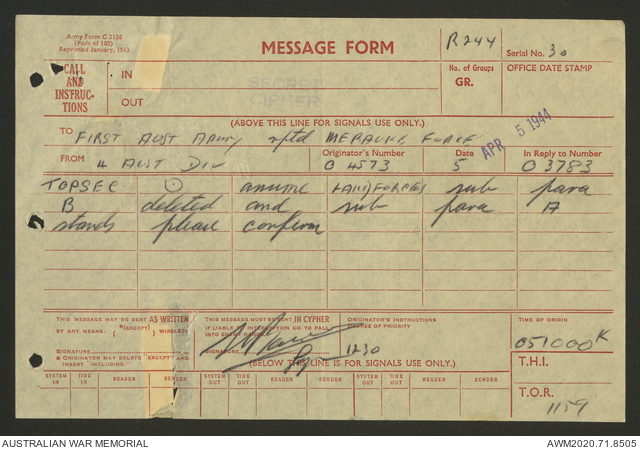 Army Form C 2130
(Pads of 100)
Reprinted January, 1943
MESSAGE FORM
R244
Serial No. 30
CALL AND INSTRUCTIONS
IN
OUT
SECRET
CIPHER
No. of Groups
GR.
OFFICE DATE STAMP
APR 5 1944
(ABOVE THIS LINE FOR SIGNALS USE ONLY.)
TO FIRST AUST ARMY rptd MERAUKE FORCE
FROM 4 AUST DIV
Originator's Number
O 4573
Date
5
In Reply to Number
O 3783
TOPSEC ⊙ assume LANDFORCES sub para
B deleted and sub para A
stands please confirm
THIS MESSAGE MAY BE SENT AS WRITTEN
BY ANY MEANS: *(EXCEPT) ( ) WIRELESS
SIGNATURE
* ORIGINATOR MAY DELETE EXCEPT AND
INSERT INCLUDING.
THIS MESSAGE MUST BE SENT IN CYPHER
IF LIABLE TO INTERCEPTION OR TO FALL
INTO ENEMY HANDS.
SIGNATURE
ORIGINATOR'S INSTRUCTIONS
DEGREE OF PRIORITY
1230
TIME OF ORIGIN
051000K
(BELOW THIS LINE IS FOR SIGNALS USE ONLY.)
T.H.I.
SYSTEM IN TIME IN READER SENDER SYSTEM OUT TIME OUT READER SENDER SYSTEM OUT TIME OUT READER SENDER
T.O.R.
1159
AUSTRALIAN WAR MEMORIAL
AWM2020.71.8505